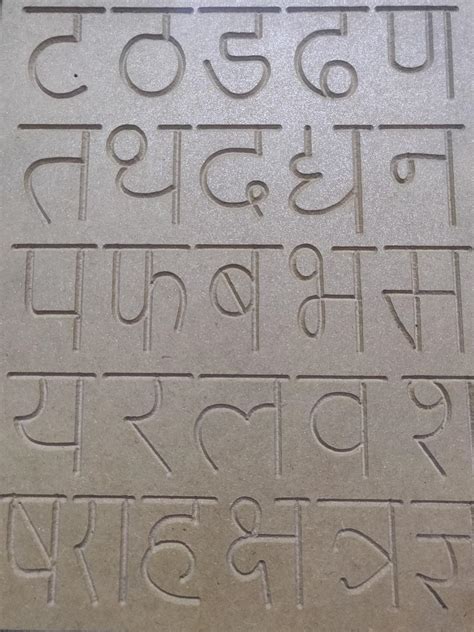 ट ठ ड ढ ण
त थ द ध न
प फ ब भ म
य र ल व श
ष स ह क्ष त्र